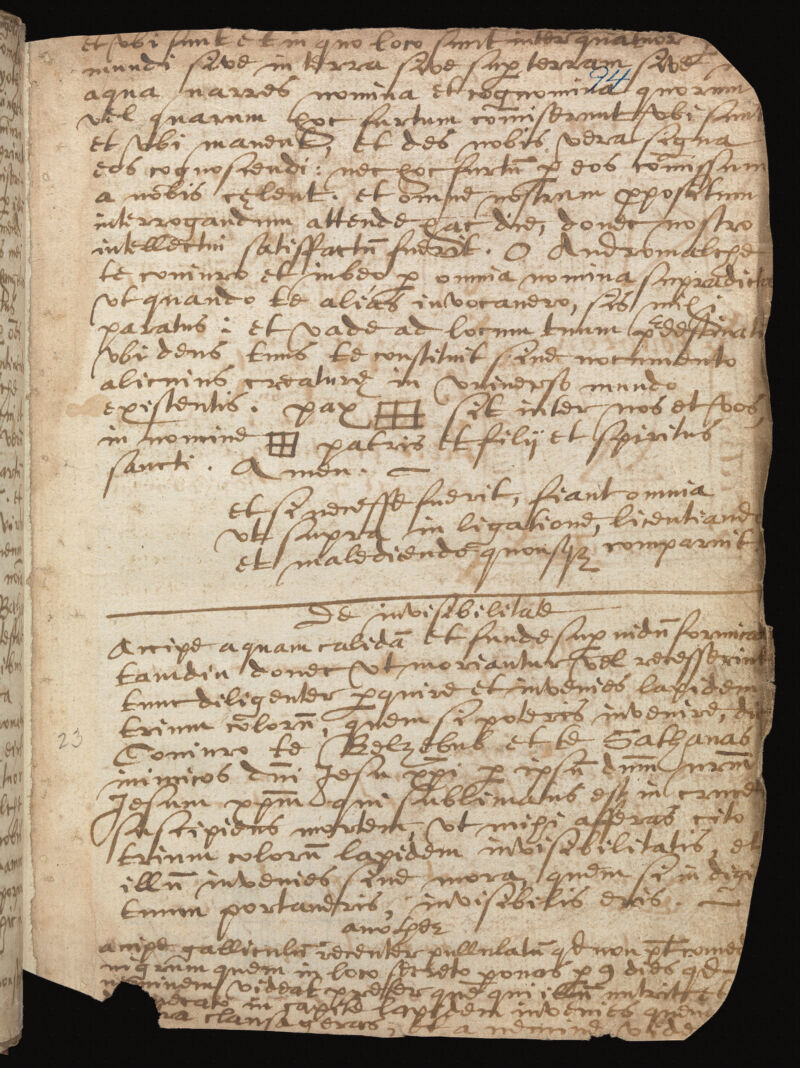 et vbi sunt et in quo loco sunt inter quatuor
mundi sive in terra sive sup terram sive
74
aqua narres nomina et cognomina quorum
vel quarum hoc furtum comiserunt vbi sunt
et vbi manent, et des nobis vera signa
eos cognoscendi: nec hoc furtu p eos comissum
a nobis celent. et omne nostrum ppositum
interrogandum attende hac die, donec nostro
intellectui satisfactu fuerit. O Andromalche
te coniuro et iubeo p omnia nomina supradicta
vt quando te alias invocavero, sis mihi
paratus: et vade ad locum tuum pdestinat
vbi deus tuus te constituit sine nocumento
alicuius creature in vniverso mundo
existentis. pax sit inter nos et vos,
in nomine patris et filij et spiritus
sancti. Amen.
et si necesse fuerit, fiant omnia
vt supra in ligatione, licentiand
et maledicende quousq comparuit
De invisibilitate
Accipe aquam calida et funde sup nidu formica
tamdiu donec vt moriantur vel recesserint
tunc diligenter pquire et invenies lapidem
trium coloru, quem si poteris invenire, di
23
Coniuro te Belzebub et te Sathanas
inimicos dni Jesu xpi p ipsu dnm nrm
Jesum xpm qui sublimatus est in cruce
suscipiens mortem, vt mihi afferas cito
trium coloru lapidem invisibilitatis, et
illu invenies sine mora, quem si in digi
tum portaveris, invisibilis eris.
accipe galliculu recenter pullulatu qd non pt comed
nigrum quem in loco secreto ponas p 9 dies qd
neminem videat preter que qui illu nutrit et
in capite lapidem invenies quem
clausa geras, et a nemine vide